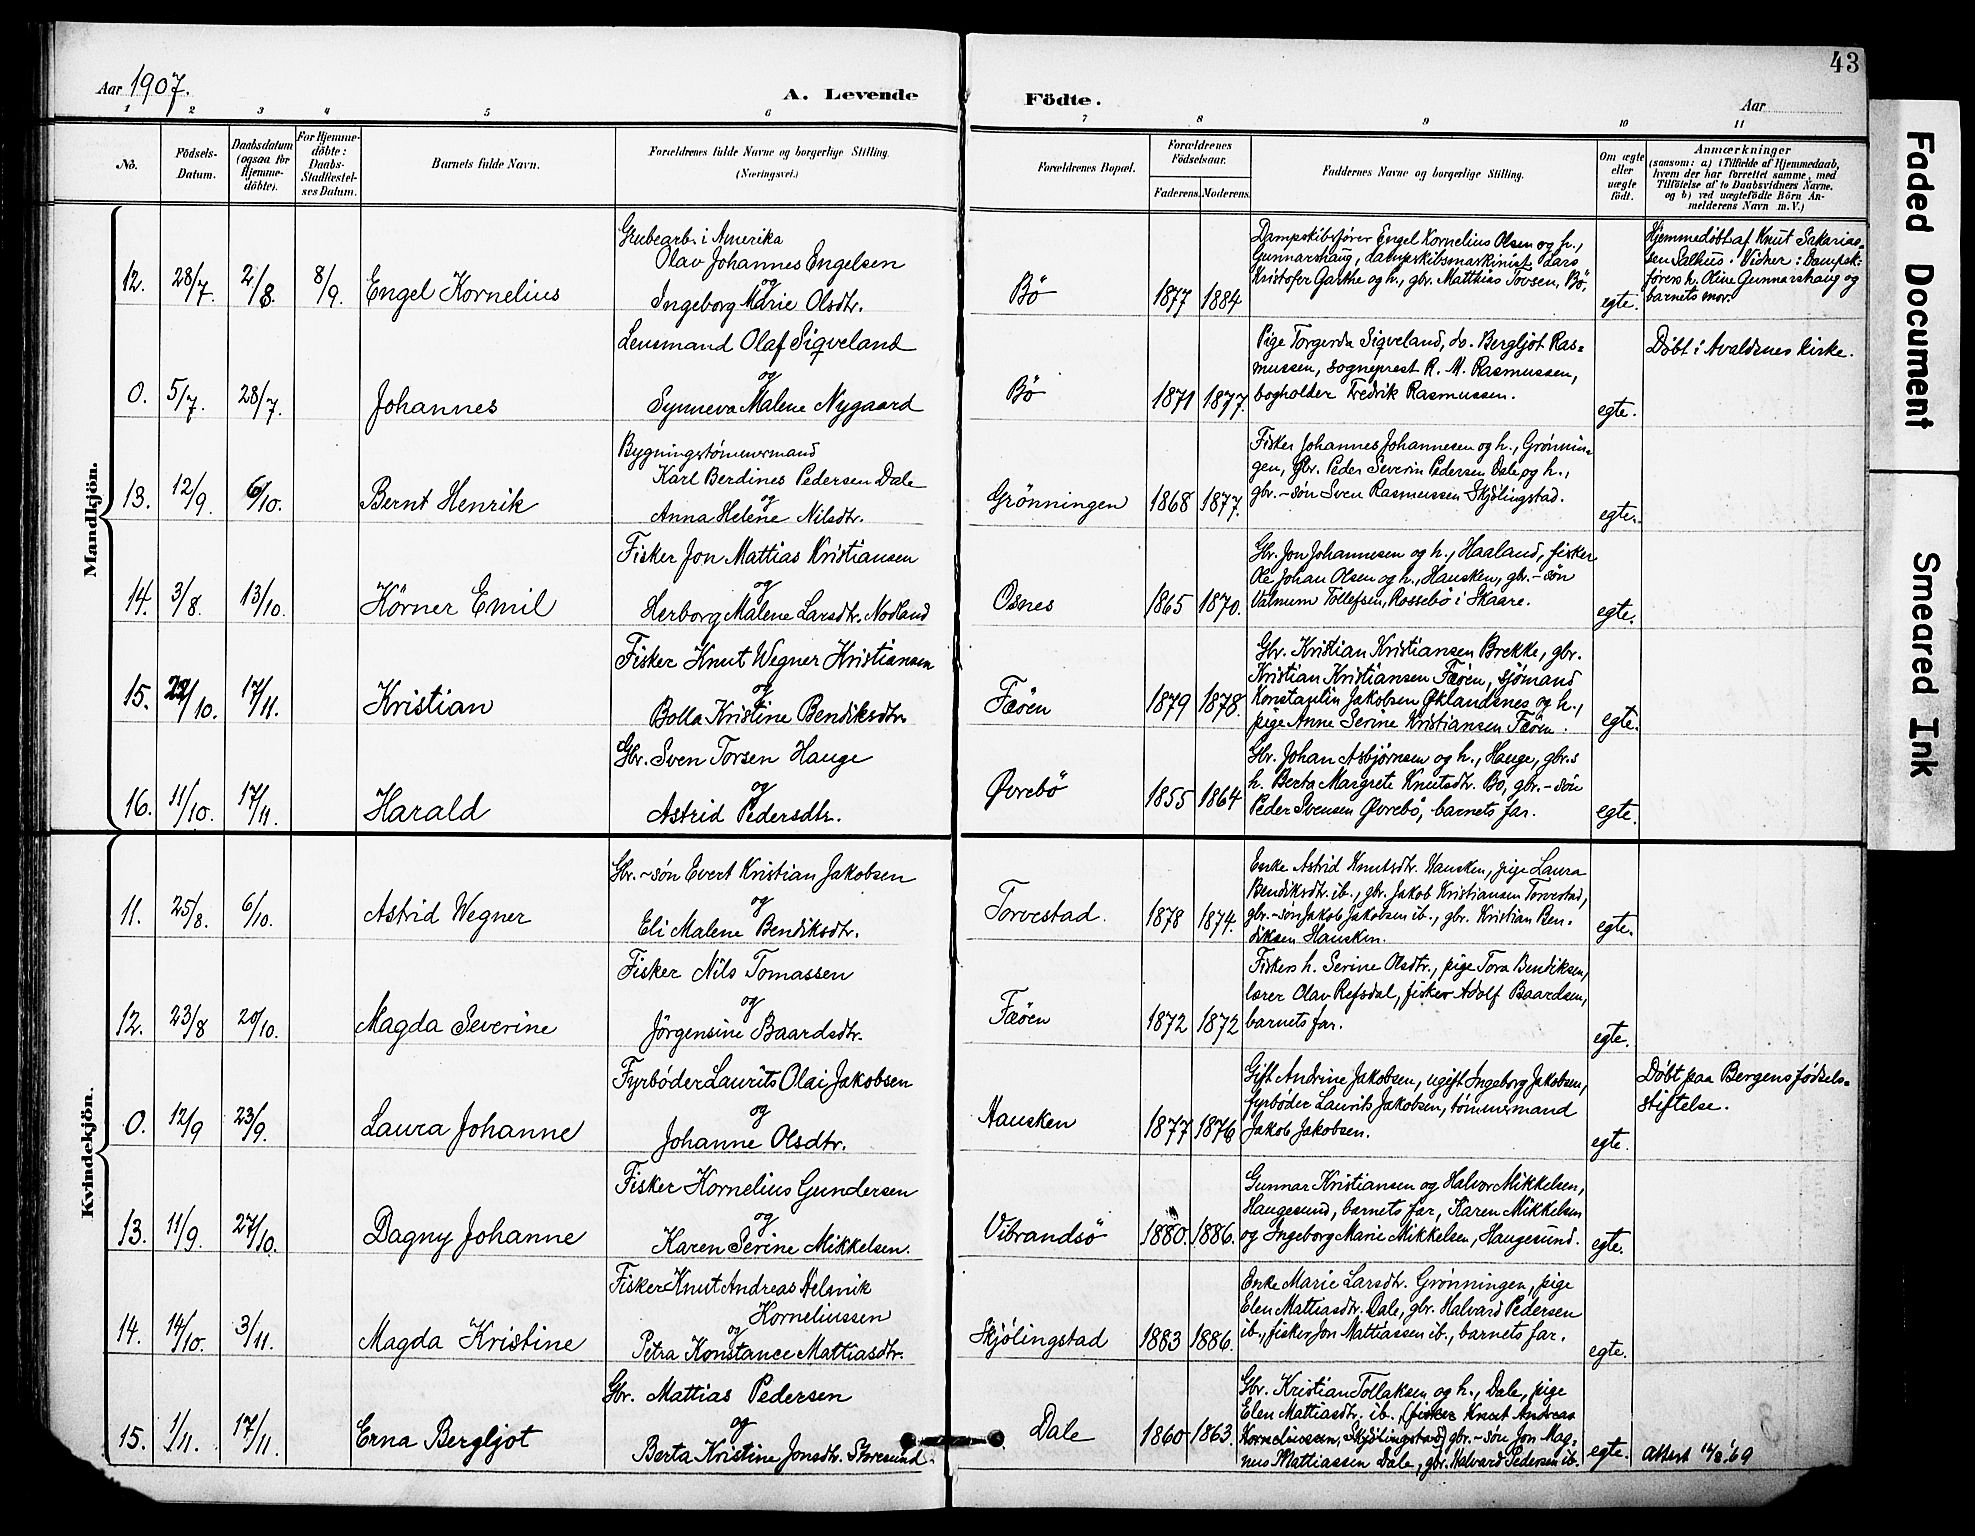 43
Aar 1907.
A. Levende Födte.
Aar
1 2 3 4 5 6 7 8 9 10 11
No.
Födsels-
Datum.
Daabsdatum
(ogsaa for
Hjemme-
döbte).
For Hjemme-
döbte:
Daabs-
Stadfæstel-
ses Datum.
Barnets fulde Navn.
Forældrenes fulde Navne og borgerlige Stilling.
(Næringsvei.)
Forældrenes Bopæl.
Forældrenes
Födselsaar.
Faderens. Moderens.
Faddernes Navne og borgerlige Stilling.
Om ægte
eller
uægte
födt.
Anmærkninger
(saasom: a) i Tilfælde af Hjemmedaab,
hvem der har forrettet samme, med
Tilföielse af to Daabsvidners Navne.
og b) ved uægtefödte Börn An-
melderens Navn m.V.)
Mandkjön.
12. 28/7. 2/8. 8/9. Engel Kornelius
Grubearb. i Amerika
Olav Johannes Engelsen
og
Ingeborg Marie Olsdtr.
Bö 1877 1884
Dampskibsfører Engel Kornelius Olsen og h.,
Gunnarshaug, dampskibsmaskinist Lars
Kristofer Garthe og h., gbr. Matthias Tovsen, Bö.
egte.
Hjemmedøbt af Knut Sakarias-
sen Salhus. Vidner: Dampsk.-
førers h. Oline Gunnarshaug og
barnets mor.
0. 5/7. 28/7. Johannes
Lensmand Olaf Sigveland
og
Synneva Malene Nygaard
Bö 1871 1877.
Pige Torgerda Sigveland, do. Bergljot Ras-
mussen, sogneprest R. M. Rasmussen,
bogholder Fredrik Rasmussen.
egte.
Døbt i Avaldsnes kirke.
13. 12/9. 6/10. Bernt Henrik
Bygningstømmermand
Karl Berdines Pedersen Dale
og
Anna Helene Nilsdtr.
Grönningen 1868 1877.
Fisker Johannes Johannesen og h., Grønnin-
gen, gbr. Peder Severin Pedersen Dale og h.,
gbr.-søn Sven Rasmussen Skjölingstad.
egte.
14. 3/8. 13/10. Körner Emil
Fisker Jon Mattias Kristiansen
og
Herborg Malene Larsdtr. Nodland
Osnes 1865 1870.
Gbr. Jon Johannesen og h., Haaland, fisker
Ole Johan Olsen og h., Hausken, gbr.-søn
Valmum Tollefsen, Rossebö i Skaare.
egte.
15. 22/10. 17/11. Kristian
Fisker Knut Wegner Kristiansen
og
Bolla Kristine Bendiksdtr.
Fæöen 1879 1878.
Gbr. Kristian Kristiansen Brekke, gbr.
Kristian Kristiansen Fæöen, sjömand
Konstantin Jakobsen Øklandsnes og h.,
pige Anne Serine Kristiansen Fæöen.
egte.
16. 11/10. 17/11. Harald
Gbr. Sven Torsen Hauge
og
Astrid Pedersdtr.
Øvrebö 1855 1864
Gbr. Johan Asbjørnsen og h., Hauge, gbr.s
h. Berta Margrete Knutsdtr. Bö, gbr.-søn
Peder Svensen Øvrebö, barnets far.
egte.
Kvindekjön.
11. 25/8. 6/10. Astrid Wegner
Gbr.-søn Evert Kristian Jakobsen
og
Eli Malene Bendiksdtr.
Torvestad. 1878 1874.
Enke Astrid Knutsdtr. Hausken, pige Laura
Bendiksdtr. ib., gbr. Jakob Kristiansen Torvestad,
gbr.-søn Jakob Jakobsen ib., gbr. Kristian Ben-
diksen Hausken.
egte.
12. 23/8 20/10. Magda Severine
Fisker Nils Tomassen
og
Jörgensine Baardsdtr.
Fæöen 1872 1872
Fiskers h. Serine Olsdtr., pige Tora Bendiksen,
lærer Olav Refsdal, fisker Adolf Baardsen,
barnets far.
egte.
0. 12/9 23/9. Laura Johanne
Fyrbøder Laurits Olai Jakobsen
og
Johanne Olsdtr.
Hausken 1877 1876
Gift Andrine Jakobsen, ugift Ingeborg Jakobsen,
fyrbøder Laurits Jakobsen, tømmermand
Jakob Jakobsen.
egte.
Døbt paa Bergens fødsels-
stiftelse.
13. 11/9. 27/10. Dagny Johanne
Fisker Kornelius Gundersen
og
Karen Serine Mikkelsen.
Vibrandsö 1880. 1886.
Gunnar Kristiansen og Halvor Mikkelsen,
Haugesund, barnets far, Karen Mikkelsen
og Ingeborg Marie Mikkelsen, Haugesund.
egte.
14. 14/10. 3/11. Magda Kristine
Fisker Knut Andreas Delsvik
Korneliussen
og
Petra Konstance Mattiasdtr.
Skjölingstad 1883 1886.
Enke Marie Larsdtr. Grønningen, pige
Elen Mattiasdtr. Dale, gbr. Halvard Pedersen
ib., fisker Jon Mattiassen ib., barnets far.
egte.
15. 1/11. 17/11. Erna Bergljot
Gbr. Mattias Pedersen
og
Berta Kristine Jonsdtr. Storesund.
Dale 1860 1863.
Gbr. Kristian Tollaksen og h., Dale, pige
Elen Mattiasdtr. ib., (fisker Knut Andreas
Korneliussen, Skjölingstad) gbr.-søn Jon Mag-
nus Mattiassen Dale, gbr. Halvard Pedersen ib.
egte.
Attest 14/8 '69
Faded Document
Smeared Ink